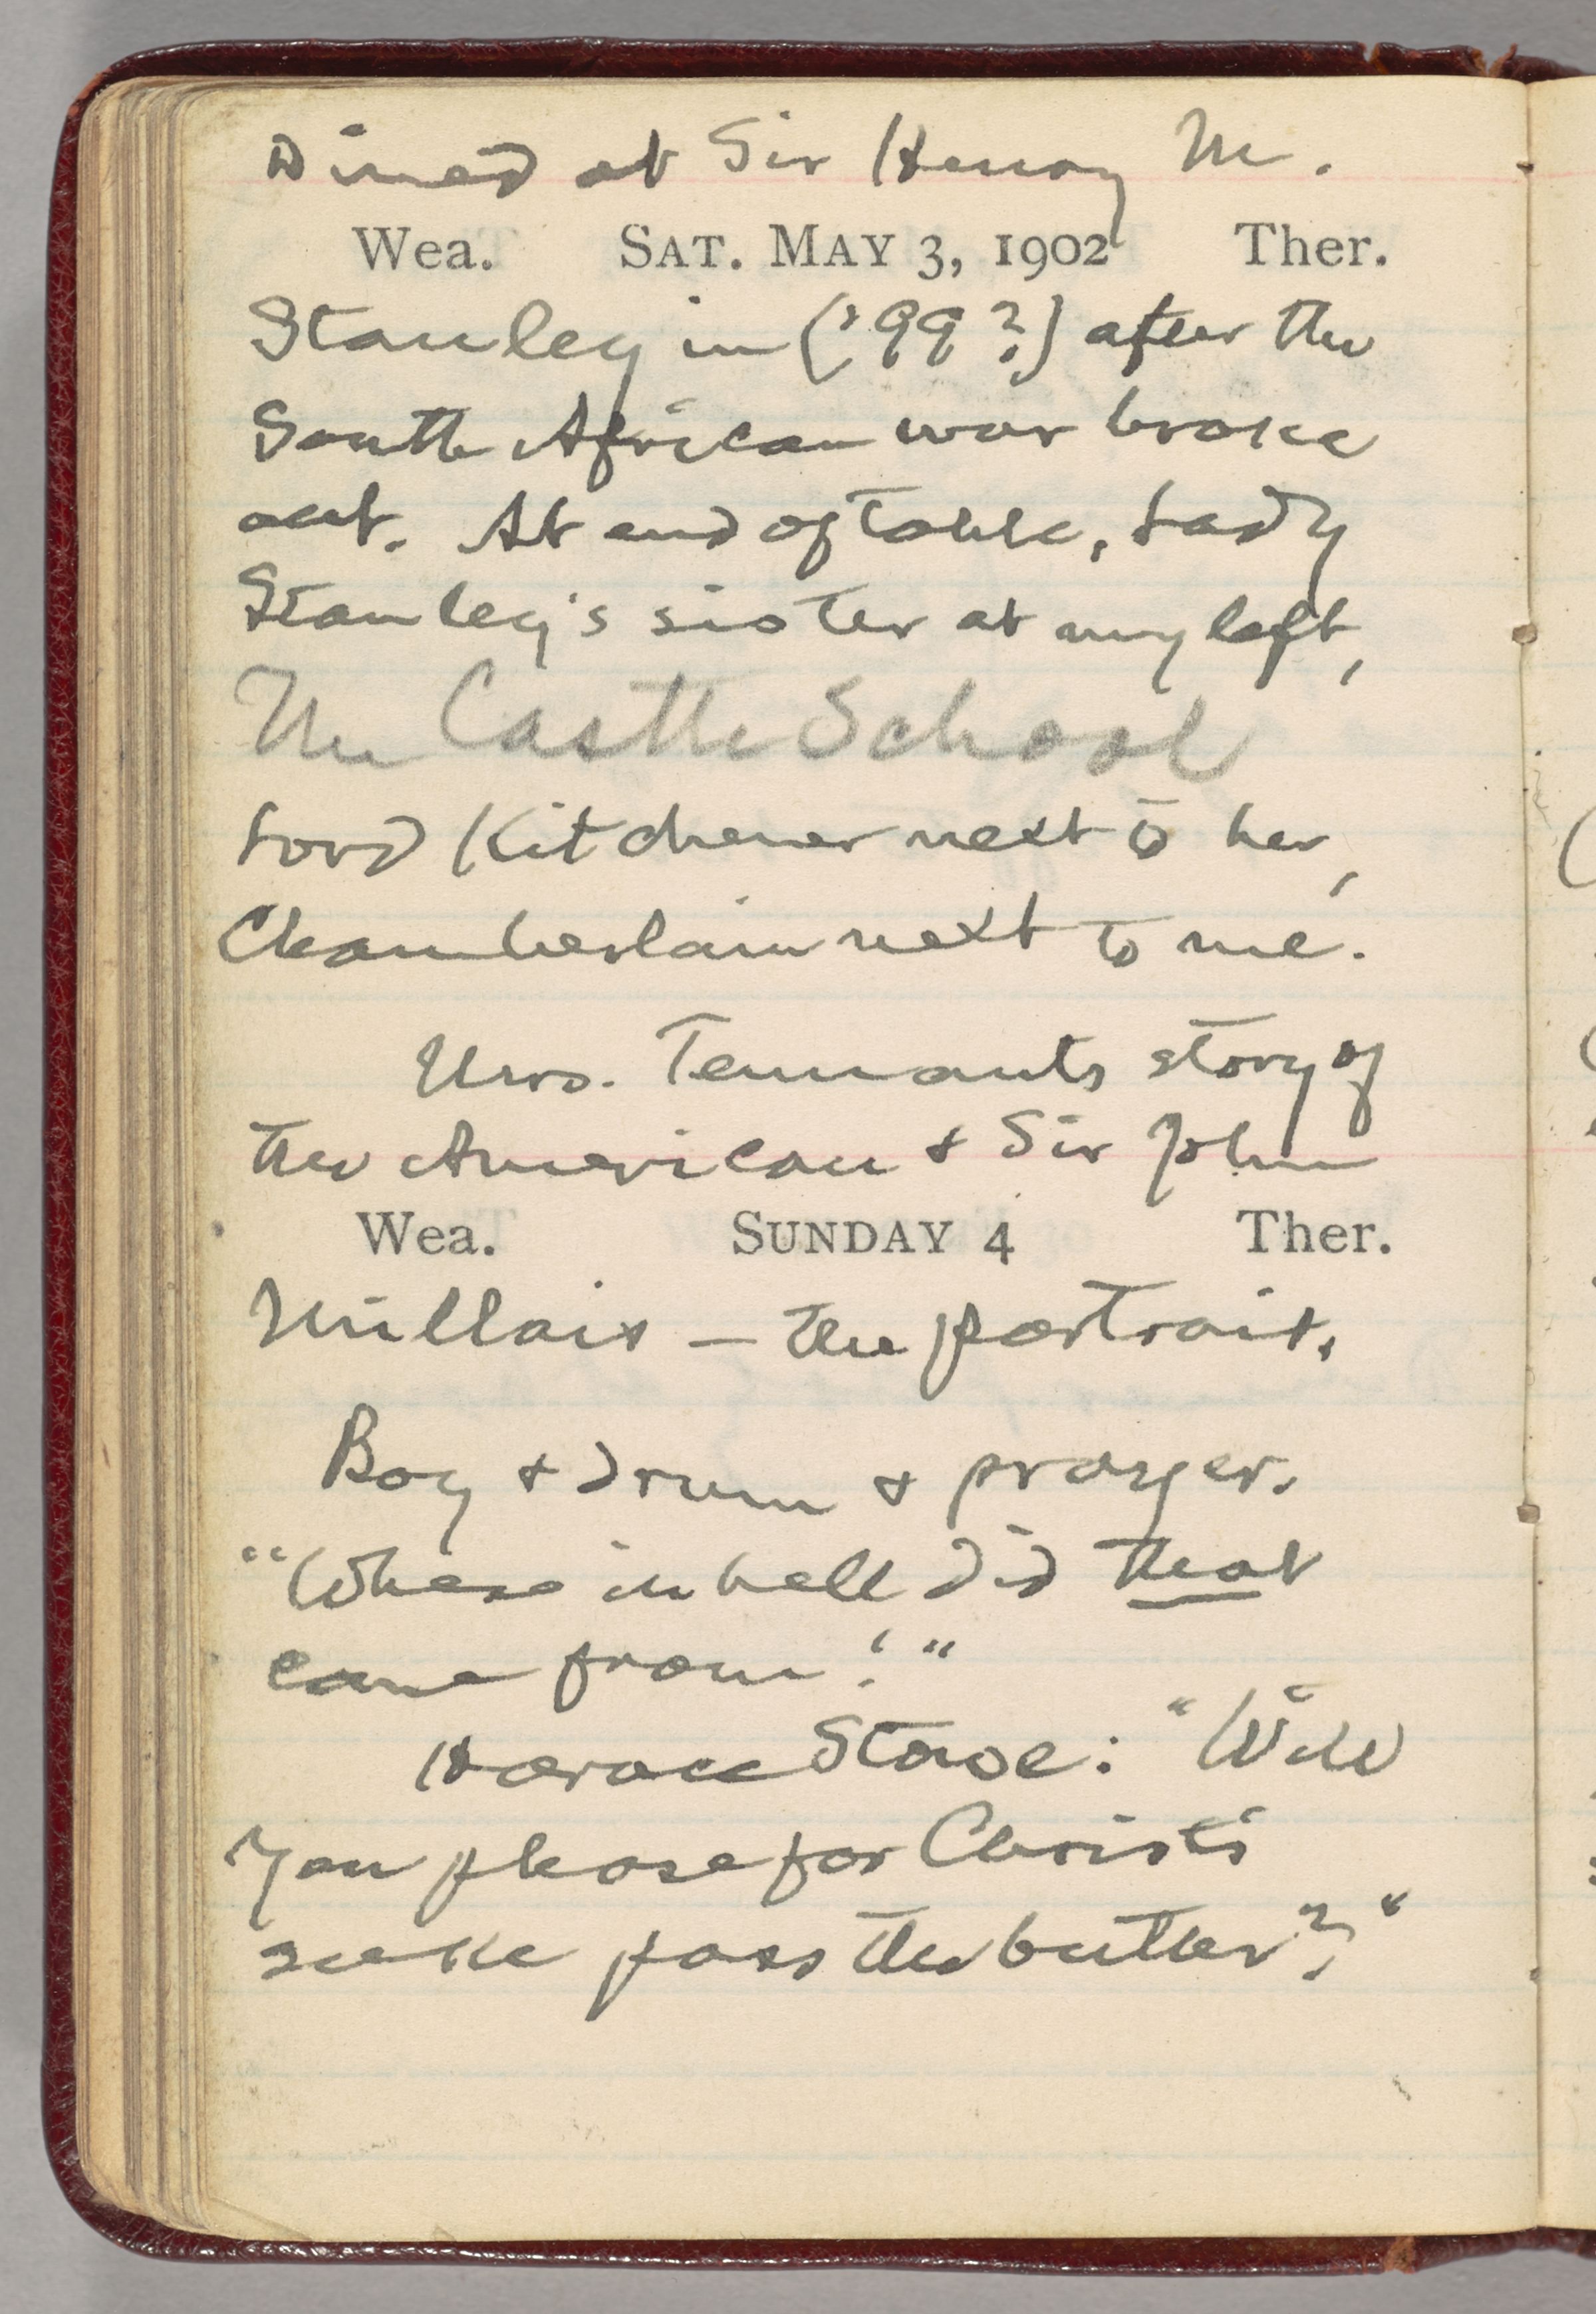 Dined at Sir Henry M.
Wea. SAT. MAY 3, 1902 Ther.
Stanley in ('99?) after the
South African war broke
out. At end of table, Lady
Stanley's sister at my left,
The Castle School
Lord Kitchener next to her,
Chamberlain next to me.
Mrs. Tennants story of
the American & Sir John
Wea. SUNDAY 4 Ther.
Millais — the portrait.
Boy & drum & prayer.
"Where in hell did that
come from!"
Horace Stowe: "Will
you please for Christ's
sake pass the butter?"